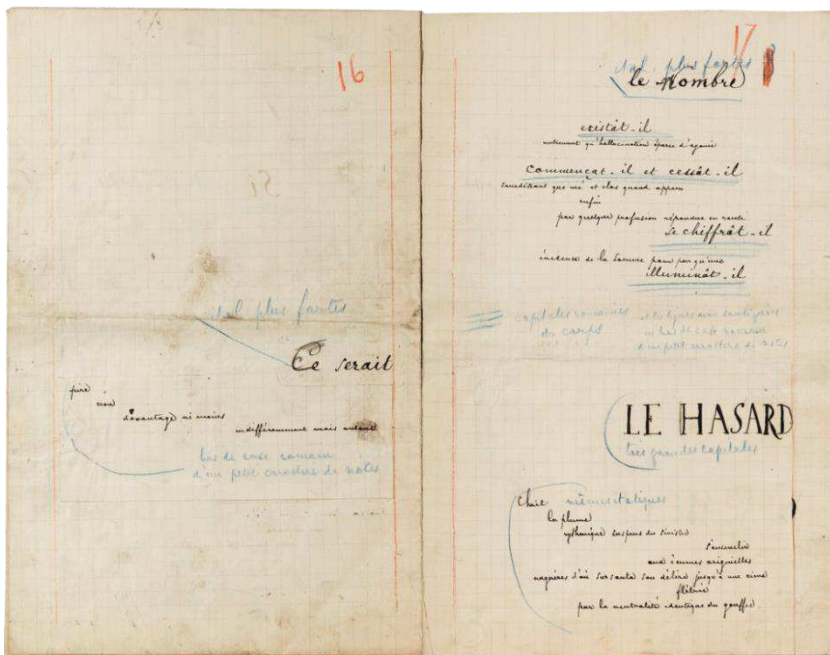 16
ital. plus fortes
Ce serait
pire
non
davantage ni moins
indifféremment mais autant
bas de casse romain
d'un petit caractère de notes
17
ital. plus fortes
le Nombre
existât-il
autrement qu'hallucination éparse d'agonie
commençât-il et cessât-il
que nié et clos quand apparu
enfin
par quelque profusion répandue en rareté
se chiffrât-il
évidence de la somme pour peu qu'une
illuminât-il
capitales romaines
du corps
et les lignes non soulignées
en bas de casse romain
d'un petit caractère de notes
LE HASARD
très grandes capitales
Choit mêmes italiques
la plume
rythmique suspens du sinistre
s'ensevelir
aux écumes originelles
naguères d'où sursauta son délire jusqu'à une cime
flétrie
par la neutralité identique du gouffre